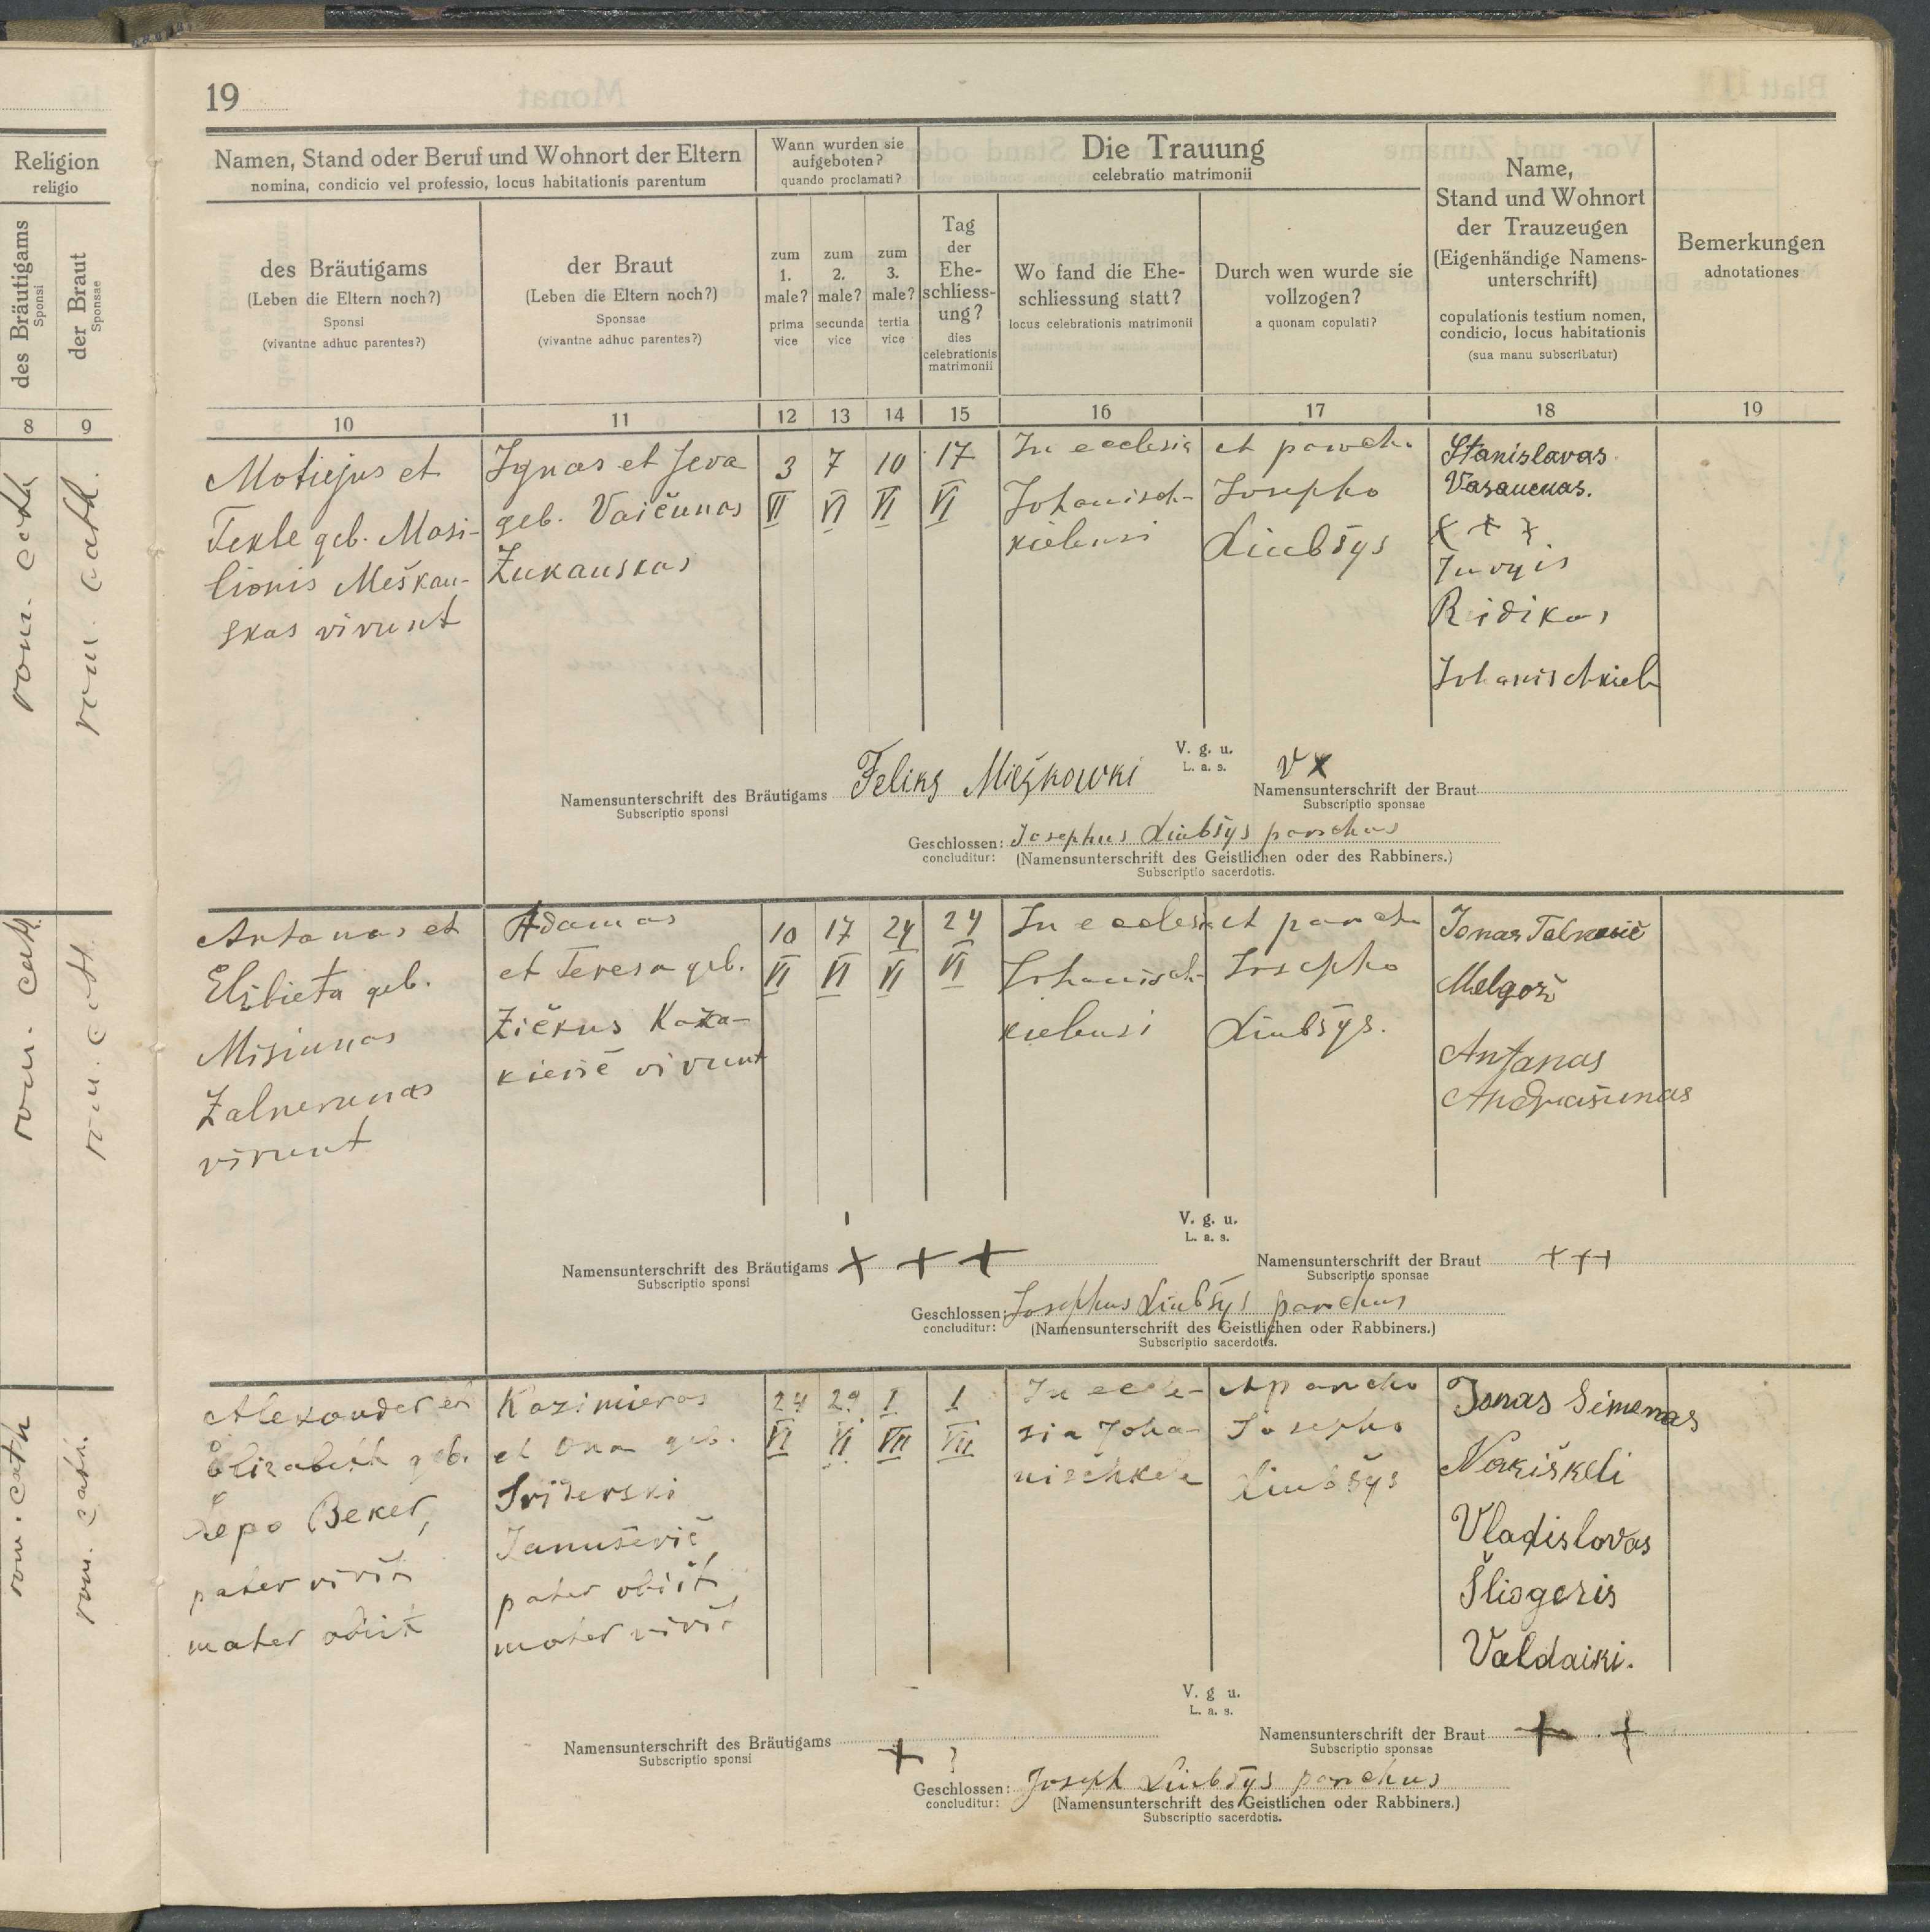 19
Religion
religio
des Bräutigams
Sponsi
der Braut
Sponsae
8
9
rom. cath
rom. cath.
rom. cath.
rom. cath.
rom. cath
rom. cath.
Namen, Stand oder Beruf und Wohnort der Eltern
nomina, condicio vel professio, locus habitationis parentum
Wann wurden sie
aufgeboten?
quando proclamati?
Die Trauung
celebratio matrimonii
Name,
Stand und Wohnort
der Trauzeugen
(Eigenhändige Namens-
unterschrift)
copulationis testium nomen,
condicio, locus habitationis
(sua manu subscribatur)
Bemerkungen
adnotationes
des Bräutigams
(Leben die Eltern noch?)
Sponsi
(vivantne adhuc parentes?)
der Braut
(Leben die Eltern noch?)
Sponsae
(vivantne adhuc parentes?)
zum
1.
male?
prima
vice
zum
2.
male?
secunda
vice
zum
3.
male?
tertia
vice
Tag
der
Ehe-
schliess-
ung?
dies
celebrationis
matrimonii
Wo fand die Ehe-
schliessung statt?
locus celebrationis matrimonii
Durch wen wurde sie
vollzogen?
a quonam copulati?
10
11
12
13
14
15
16
17
18
19
Motiejus et
Tekle geb. Masi-
lionis Meškau-
skas vivunt
Ignas et Jeva
geb. Vaičunas
Žukauskas
3
VI
7
VI
10
VI
17
VI
In ecclesia
Johanisch-
kielensi
et paroch.
Josepho
Liubšys
Stanislavas
Vasauenas.
x x x
Jurgis
Ridikas
Johanischkiel
V. g. u.
L. a. s.
Namensunterschrift des Bräutigams Feliks Mieżkowki
Subscriptio sponsi
V x
Namensunterschrift der Braut
Subscriptio sponsae
Geschlossen: Josephus Liubšys parochus
concluditur: (Namensunterschrift des Geistlichen oder des Rabbiners.)
Subscriptio sacerdotis.
Antanas et
Elžbieta geb.
Misiunas
Žalnerunas
vivunt
Adamas
et Teresa geb.
Žičkus Kaza-
kievič vivunt
10
VI
17
VI
24
VI
24
VI
In ecclesia
Johanisch-
kielensi
et paroch
Josepho
Liubšys.
Jonas
Antanas
V. g. u.
L. a. s.
Namensunterschrift des Bräutigams + + +
Subscriptio sponsi
Namensunterschrift der Braut + + +
Subscriptio sponsae
Geschlossen: Josephus Liubšys parochus
concluditur: (Namensunterschrift des Geistlichen oder Rabbiners.)
Subscriptio sacerdotis.
Alexander et
Elizabeth geb.
Lepo Beker,
pater vivit
mater obiit
Kazimieras
et Ona geb.
Sviderski
Januševič
pater obiit
mater vivit
24
VI
29
VI
1
VII
1
VII
In eccle-
sia Joha-
nischkele
et parocho
Josepho
Liubšys
Jonas Simenas
Nakiškeli
Vladislovas
Šliogeris
Valdaiki.
V. g u.
L. a. s.
Namensunterschrift des Bräutigams
Subscriptio sponsi
+
Namensunterschrift der Braut + +
Subscriptio sponsae
Geschlossen: Joseph Liubšys parochus
concluditur: (Namensunterschrift des Geistlichen oder Rabbiners.)
Subscriptio sacerdotis.